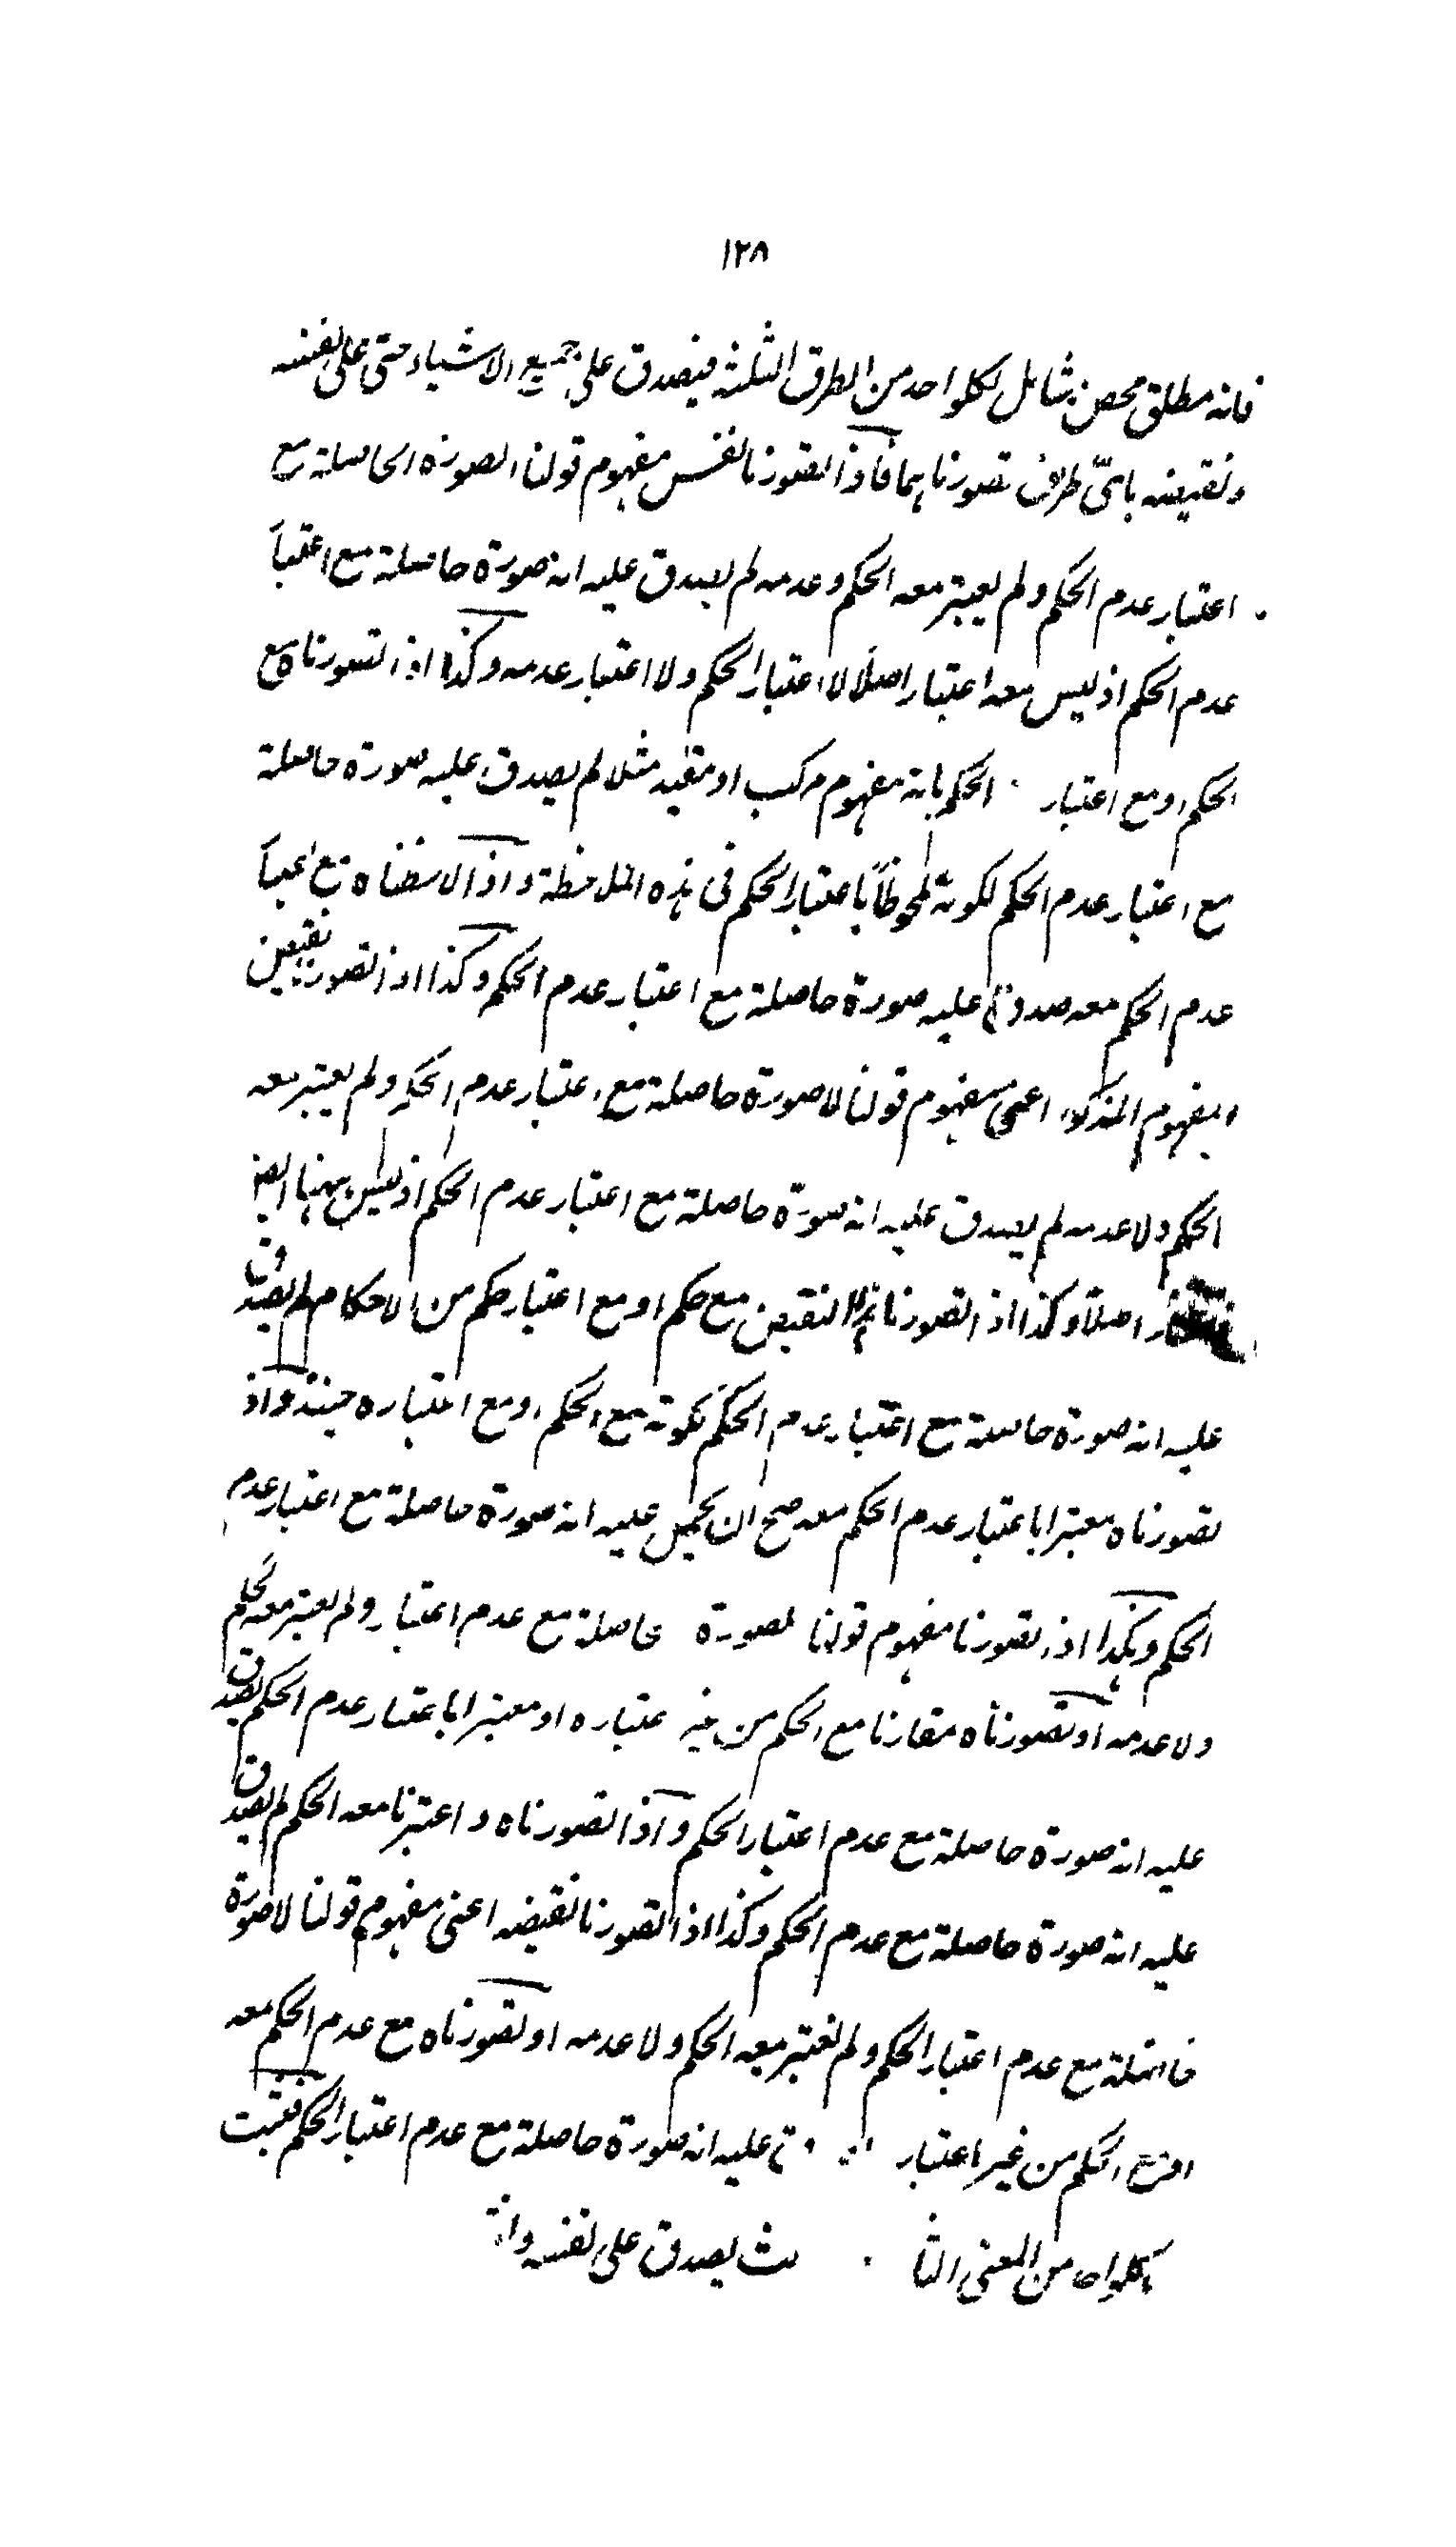 ١٢٨
فانه مطلق محض شامل لكلواحد من الطرق الثلثة فيصدق على جميع الاشياء حتى على نفسه
ونقيضه باىّ طريق تصورناهما فاذا تصورنا نفس مفهوم قولنا الصورة الحاصلة مع
اعتبار عدم الحكم ولم يعتبر معه الحكم وعدمه لم يصدق عليه انه صورة حاصلة مع اعتبا
عدم الحكم اذ ليس معه اعتبار اصلا لا اعتبار الحكم ولا اعتبار عدمه وكذا اذا تصورناه مع
الحكم او مع اعتبار الحكم بانه مفهوم مركب او مقيد مثلا لم يصدق عليه صورة حاصلة
مع اعتبار عدم الحكم لكونه ملحوظاً باعتبار الحكم فى هذه الملاحظة واذا لاحظناه مع اعتبا
عدم الحكم معه صدق عليه صورة حاصلة مع اعتبار عدم الحكم وكذا اذا تصورنا نقيض
المفهوم المذكور اعنى مفهوم قولنا لاصورة حاصلة مع اعتبار عدم الحكم ولم يعتبر معه
الحكم ولا عدمه لم يصدق عليه انه صورة حاصلة مع اعتبار عدم الحكم اذ ليس ههنا ايضا
اصلا وكذا اذا تصورنا هذا النقيض مع حكم او مع اعتبار حكم من الاحكام لم يصدق
عليه انه صورة حاصلة مع اعتبار عدم الحكم لكونه مع الحكم او مع اعتباره حينئذ واذ
تصورناه معتبرا باعتبار عدم الحكم معه صح ان يحمل عليه انه صورة حاصلة مع اعتبار عدم
الحكم وهكذا اذا تصورنا مفهوم قولنا صورة حاصلة مع عدم اعتبار ولم يعتبر معه الحكم
ولا عدمه او تصورناه مقارنا مع الحكم من غير اعتباره او معتبرا باعتبار عدم الحكم يصدق
عليه انه صورة حاصلة مع عدم اعتبار الحكم واذا تصورناه واعتبرنا معه الحكم لم يصدق
عليه انه صورة حاصلة مع عدم الحكم وكذا اذا تصورنا نقيضه اعنى مفهوم قولنا لاصورة
حاصلة مع عدم اعتبار الحكم ولم نعتبر معه الحكم ولا عدمه او تصورناه مع عدم الحكم معه
او مع الحكم من غير اعتبار عليه انه صورة حاصلة مع عدم اعتبار الحكم فثبت
من المعنى الثا لث يصدق على نفسه